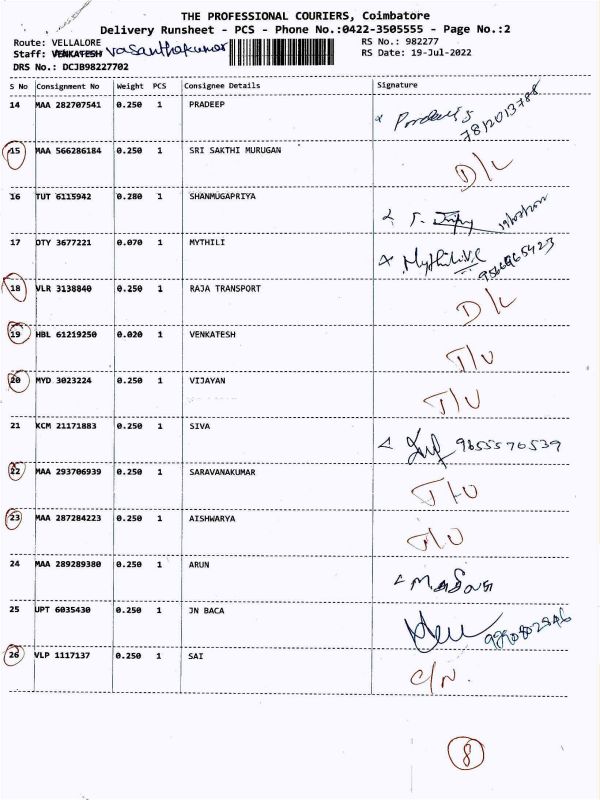 THE PROFESSIONAL COURIERS, Coimbatore
Delivery Runsheet - PCS - Phone No.:0422-3505555 - Page No.:2
Route: VELLALORE RS No.: 982277
Staff: VENKATESH Vasanthakumar RS Date: 19-Jul-2022
DRS No.: DCJB98227702
S No Consignment No Weight PCS Consignee Details Signature
14 MAA 282707541 0.250 1 PRADEEP
15 MAA 566286184 0.250 1 SRI SAKTHI MURUGAN D/L
16 TUT 6115942 0.280 1 SHANMUGAPRIYA
17 OTY 3677221 0.070 1 MYTHILI
18 VLR 3138840 0.250 1 RAJA TRANSPORT D/L
19 HBL 61219250 0.020 1 VENKATESH T/U
20 MYD 3023224 0.250 1 VIJAYAN T/U
21 KCM 21171883 0.250 1 SIVA 9655570539
22 MAA 293706939 0.250 1 SARAVANAKUMAR T/U
23 MAA 287284223 0.250 1 AISHWARYA T/U
24 MAA 289289380 0.250 1 ARUN
25 UPT 6035430 0.250 1 JN BACA
26 VLP 1117137 0.250 1 SAI C/N.
8